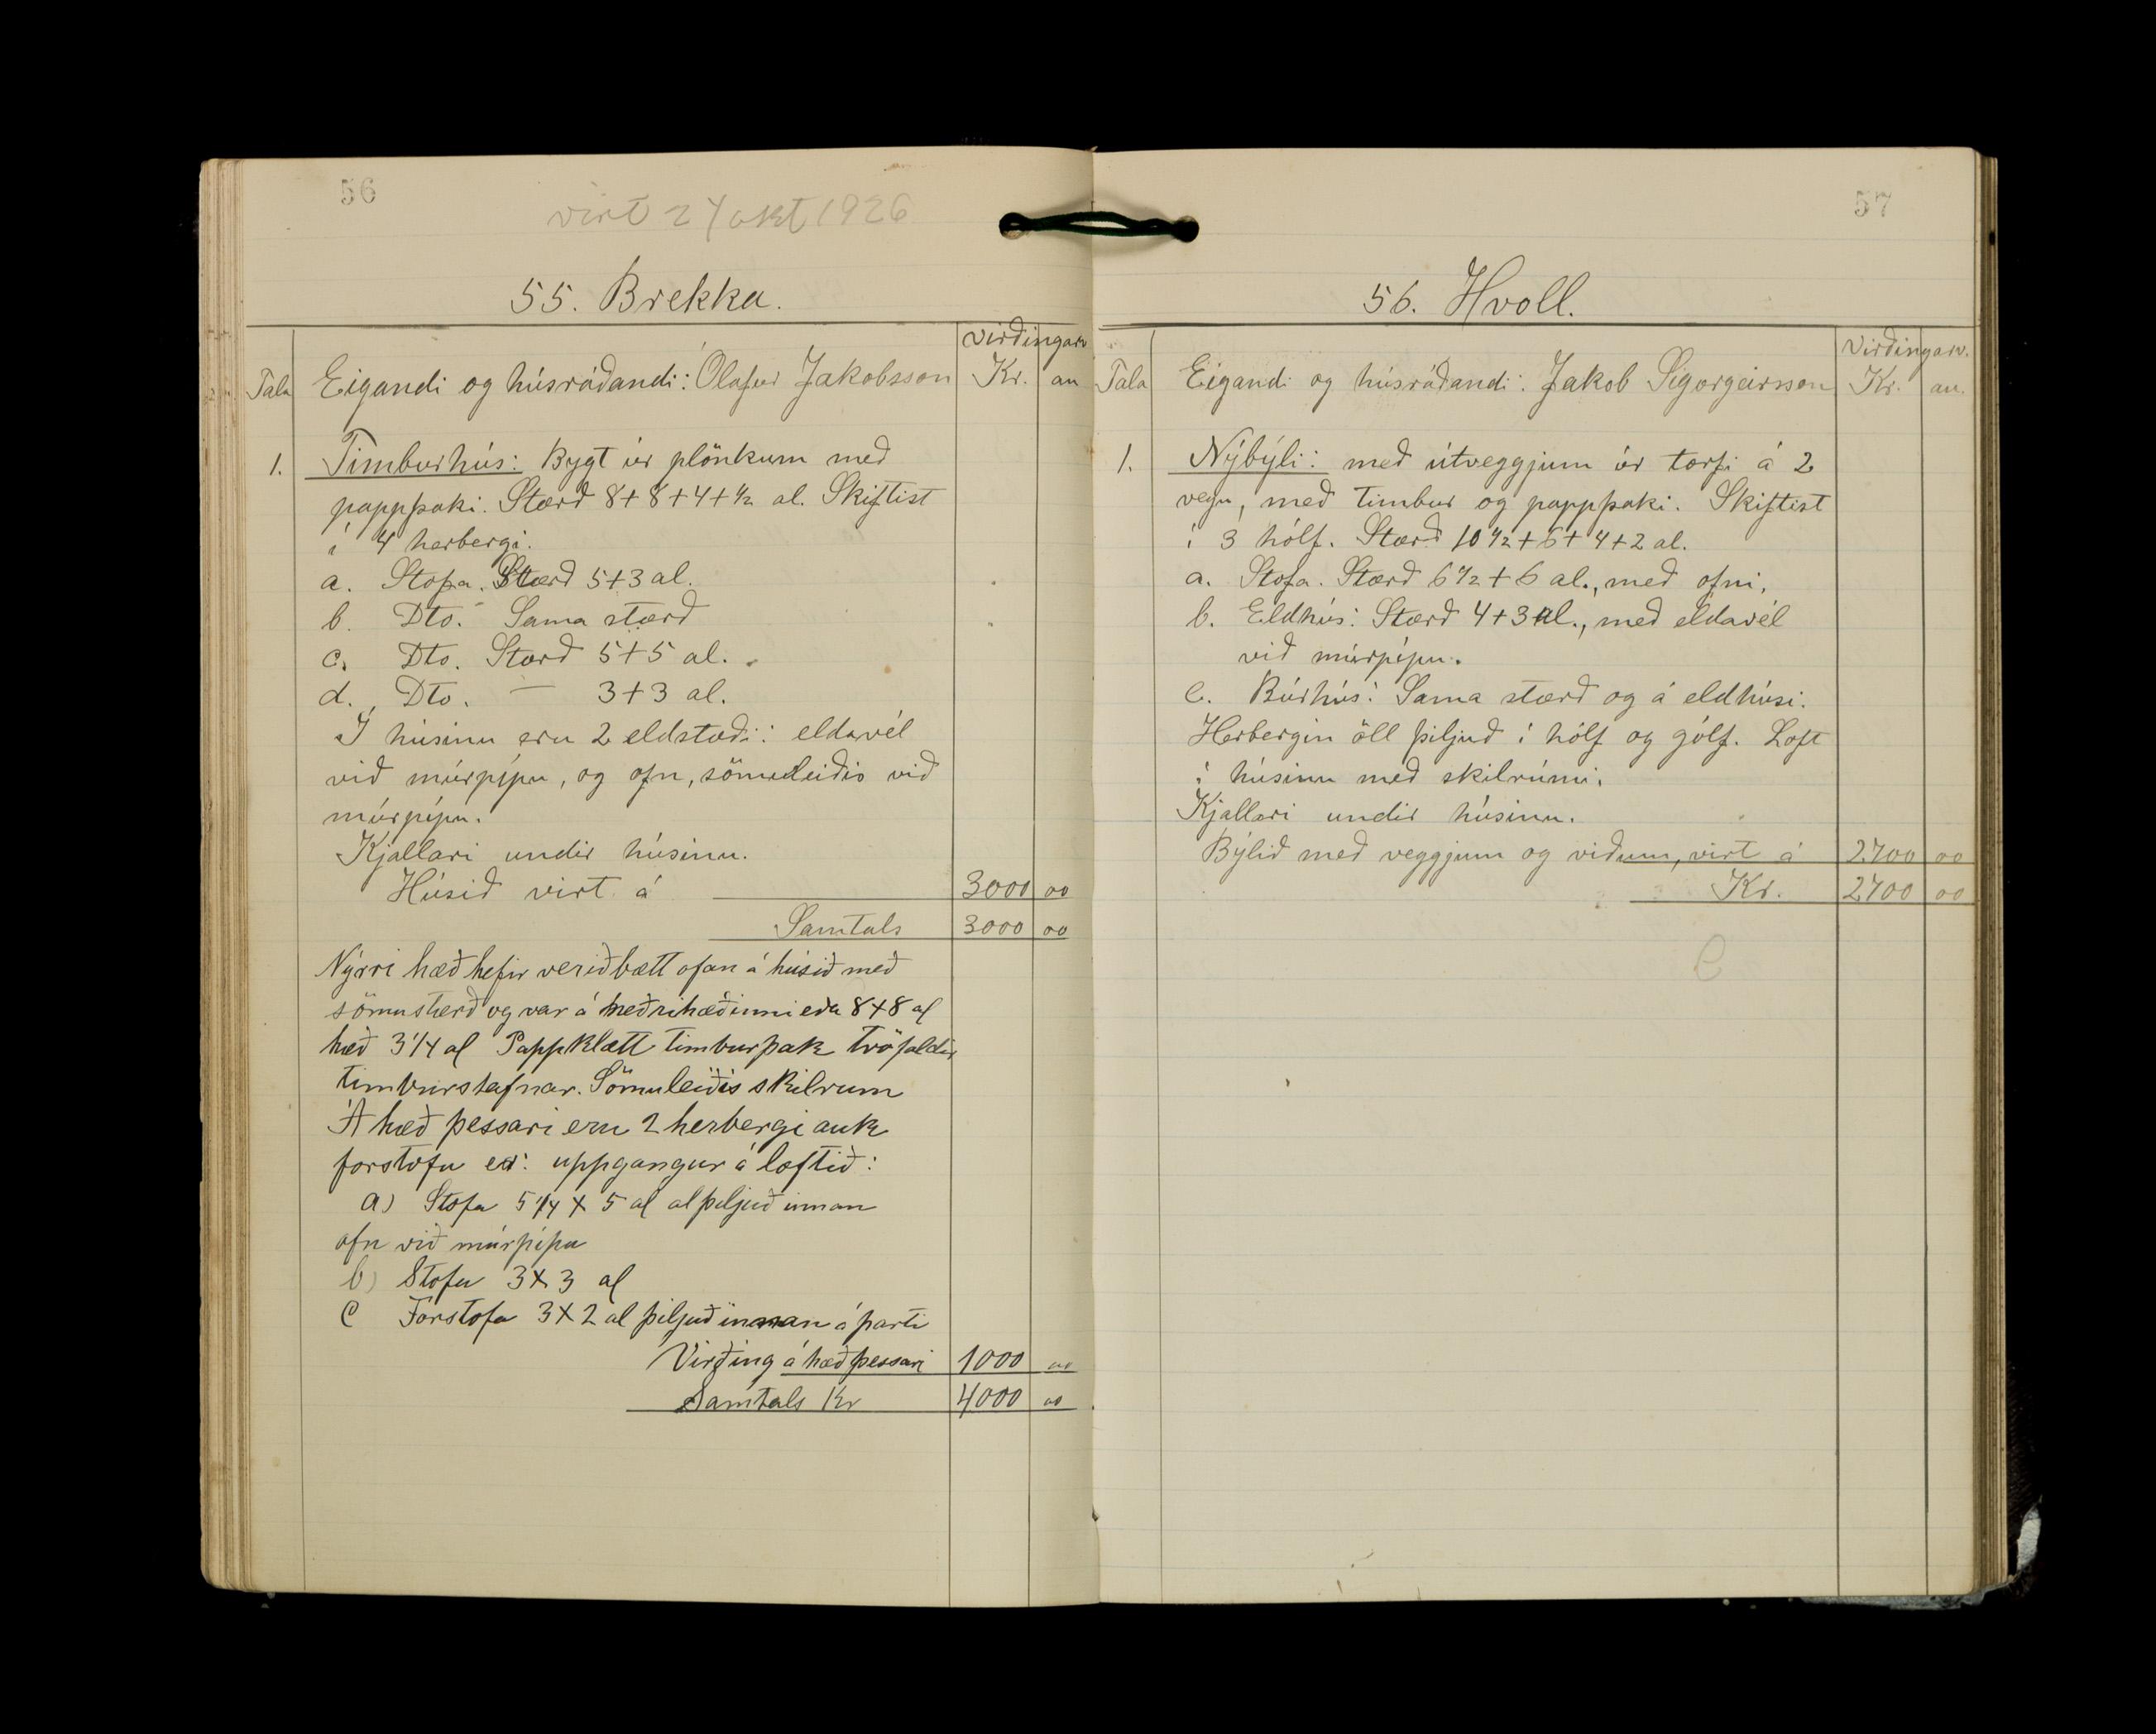 56
virt 24 okt 1926
55. Brekka.
Virðingarv
Tala Eigandi og húsráðandi: Ólafur Jakobsson Kr. au
1. Timburhús: Bygt úr plönkum með
pappþaki. Stærð 8+8+4+½ al. Skiftist
í 4 herbergi.
a. Stofa. Stærð 5+3 al.
b. Dto. Sama stærð
c. Dto. Stærð 5+5 al.
d. Dto. — 3+3 al.
Í húsinu eru 2 eldstæði: eldavél
við múrpípu, og ofn, sömuleiðis við
múrpípu.
Kjallari undir húsinu.
Húsið virt á 3000 00
Samtals 3000 00
Nýrri hæð hefir verið bætt ofan á húsið með
sömu stærð og var á neðri hæðinni eða 8×8 al
hæð 3¼ al Pappklætt timburþak tvöfaldir
timburstafnar. Sömuleiðis skilrum
Á hæð þessari eru 2 herbergi auk
forstofu er: uppgangur á loftið:
a) Stofa 5¼ × 5 al alþiljuð innan
ofn við múrpípu
b) Stofa 3×3 al
C Forstofa 3×2 al þiljuð innan á parti
Virðing á hæð þessari 1000 00
Samtals Kr 4000 00
57
56. Hvoll.
Virðingarv.
Tala Eigandi og húsráðandi: Jakob Sigorgeirsson Kr. au.
1. Nýbýli: með útveggjum úr torfi á 2
vegu, með timbur og pappþaki. Skiftist
í 3 hólf. Stærð 10½+6+4+2 al.
a. Stofa. Stærð 6½+6 al., með ofni.
b. Eldhús: Stærð 4+3 al., með eldavél
við múrpípu.
c. Búrhús: Sama stærð og á eldhúsi.
Herbergin öll þiljuð í hólf og gólf. Loft
í húsinu með skilrúmi.
Kjallari undir húsinu.
Býlið með veggjum og viðum, virt á 2700 00
Kr. 2700 00
C